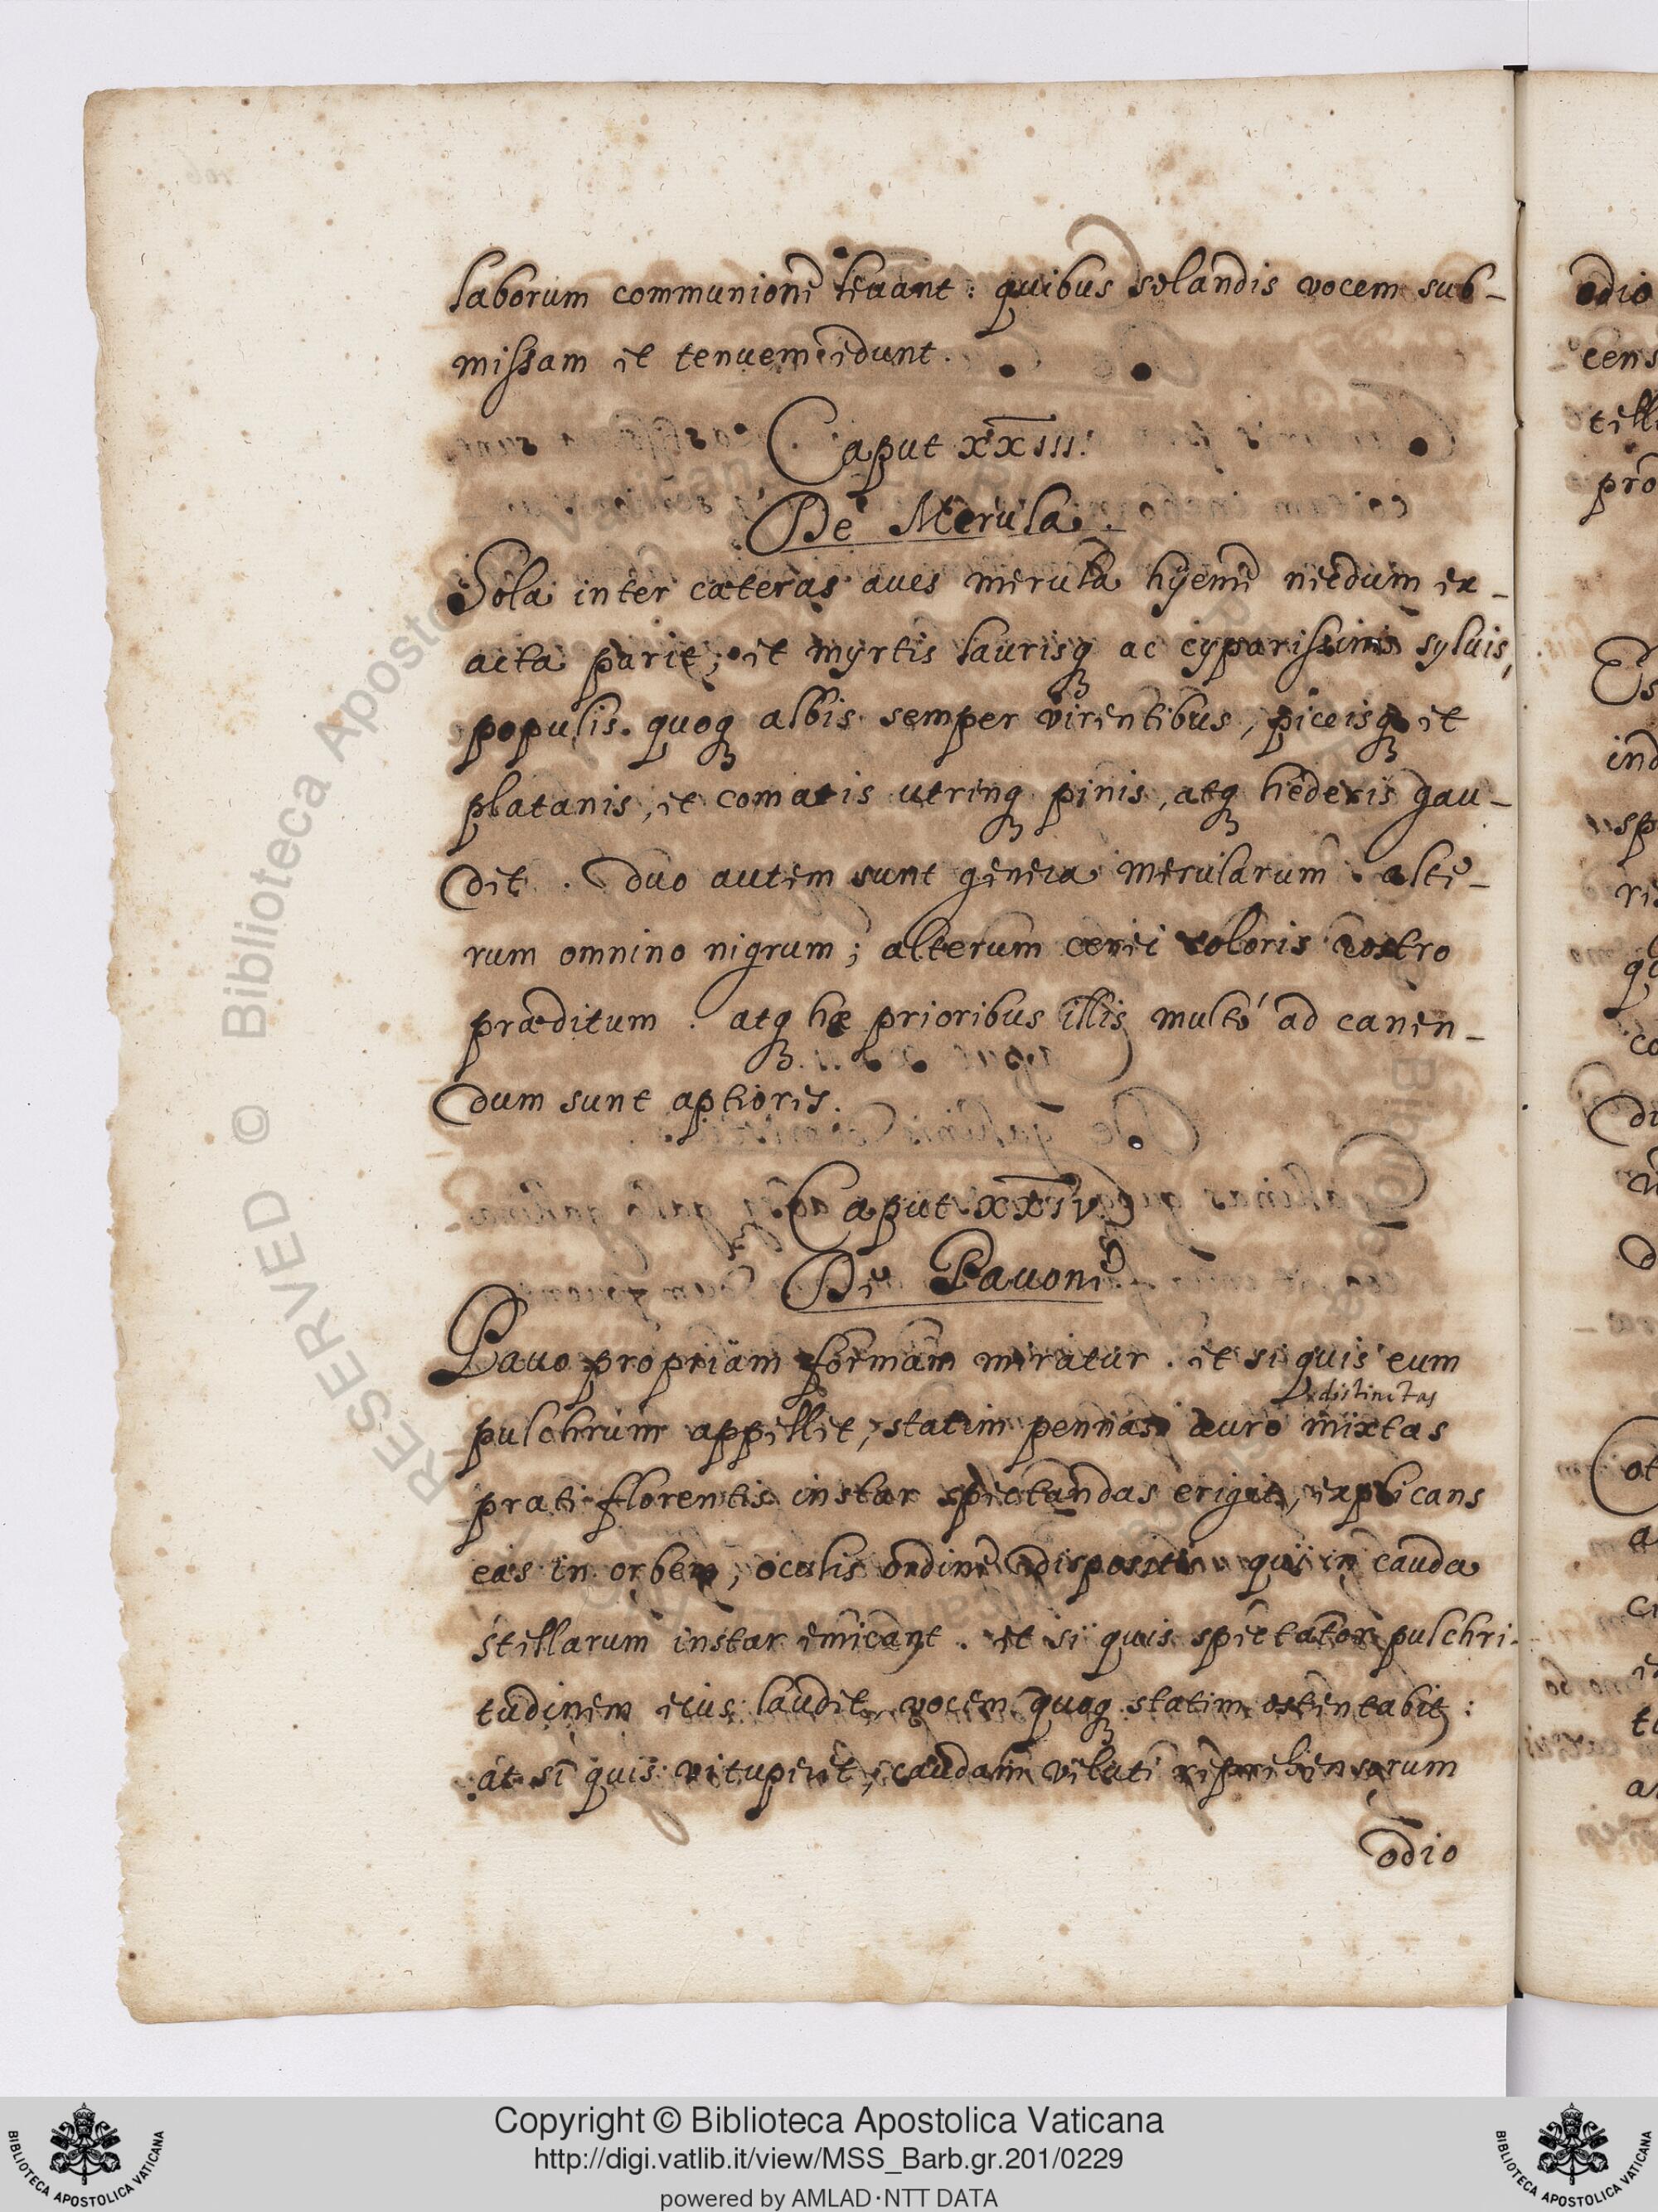 laborum communione leuant: quibus solandis vocem sub-
missam et tenuem edunt.
Caput XXIII.
De Merula.
Sola inter cæteras aues merula hyeme necdum ex-
acta parit; et myrtis laurisq ac cyparissinis syluis,
populis quoq albis semper virentibus, piceisq et
platanis, et comatis utrinq pinis, atq hederis gau-
det. Duo autem sunt genera merularum. alte-
rum omnino nigrum; alterum cerei coloris rostro
præditum. atq hæ prioribus illis multò ad canen-
dum sunt aptiores.
Caput XXIV
De Pauone
Pauo propriam formam miratur. et si quis eum
distinctas
pulchrum appellet, statim pennas auro mixtas
prati florentis instar spectandas erigit, explicans
eas in orbem, oculis ordine dispositis qui in cauda
stellarum instar emicant. et si quis spectator pulchri-
tudinem eius laudet, vocem quoq statim ostentabit:
at si quis vituperet, caudam veluti reprehensorum
odio
odio
cens
tell
pro
Es
ind
sp
co
ot
RESERVED © Biblioteca Apostolica Vaticana
Copyright © Biblioteca Apostolica Vaticana
http://digi.vatlib.it/view/MSS_Barb.gr.201/0229
powered by AMLAD·NTT DATA
BIBLIOTECA APOSTOLICA VATICANA
BIBLIOTECA APOSTOLICA VATICANA